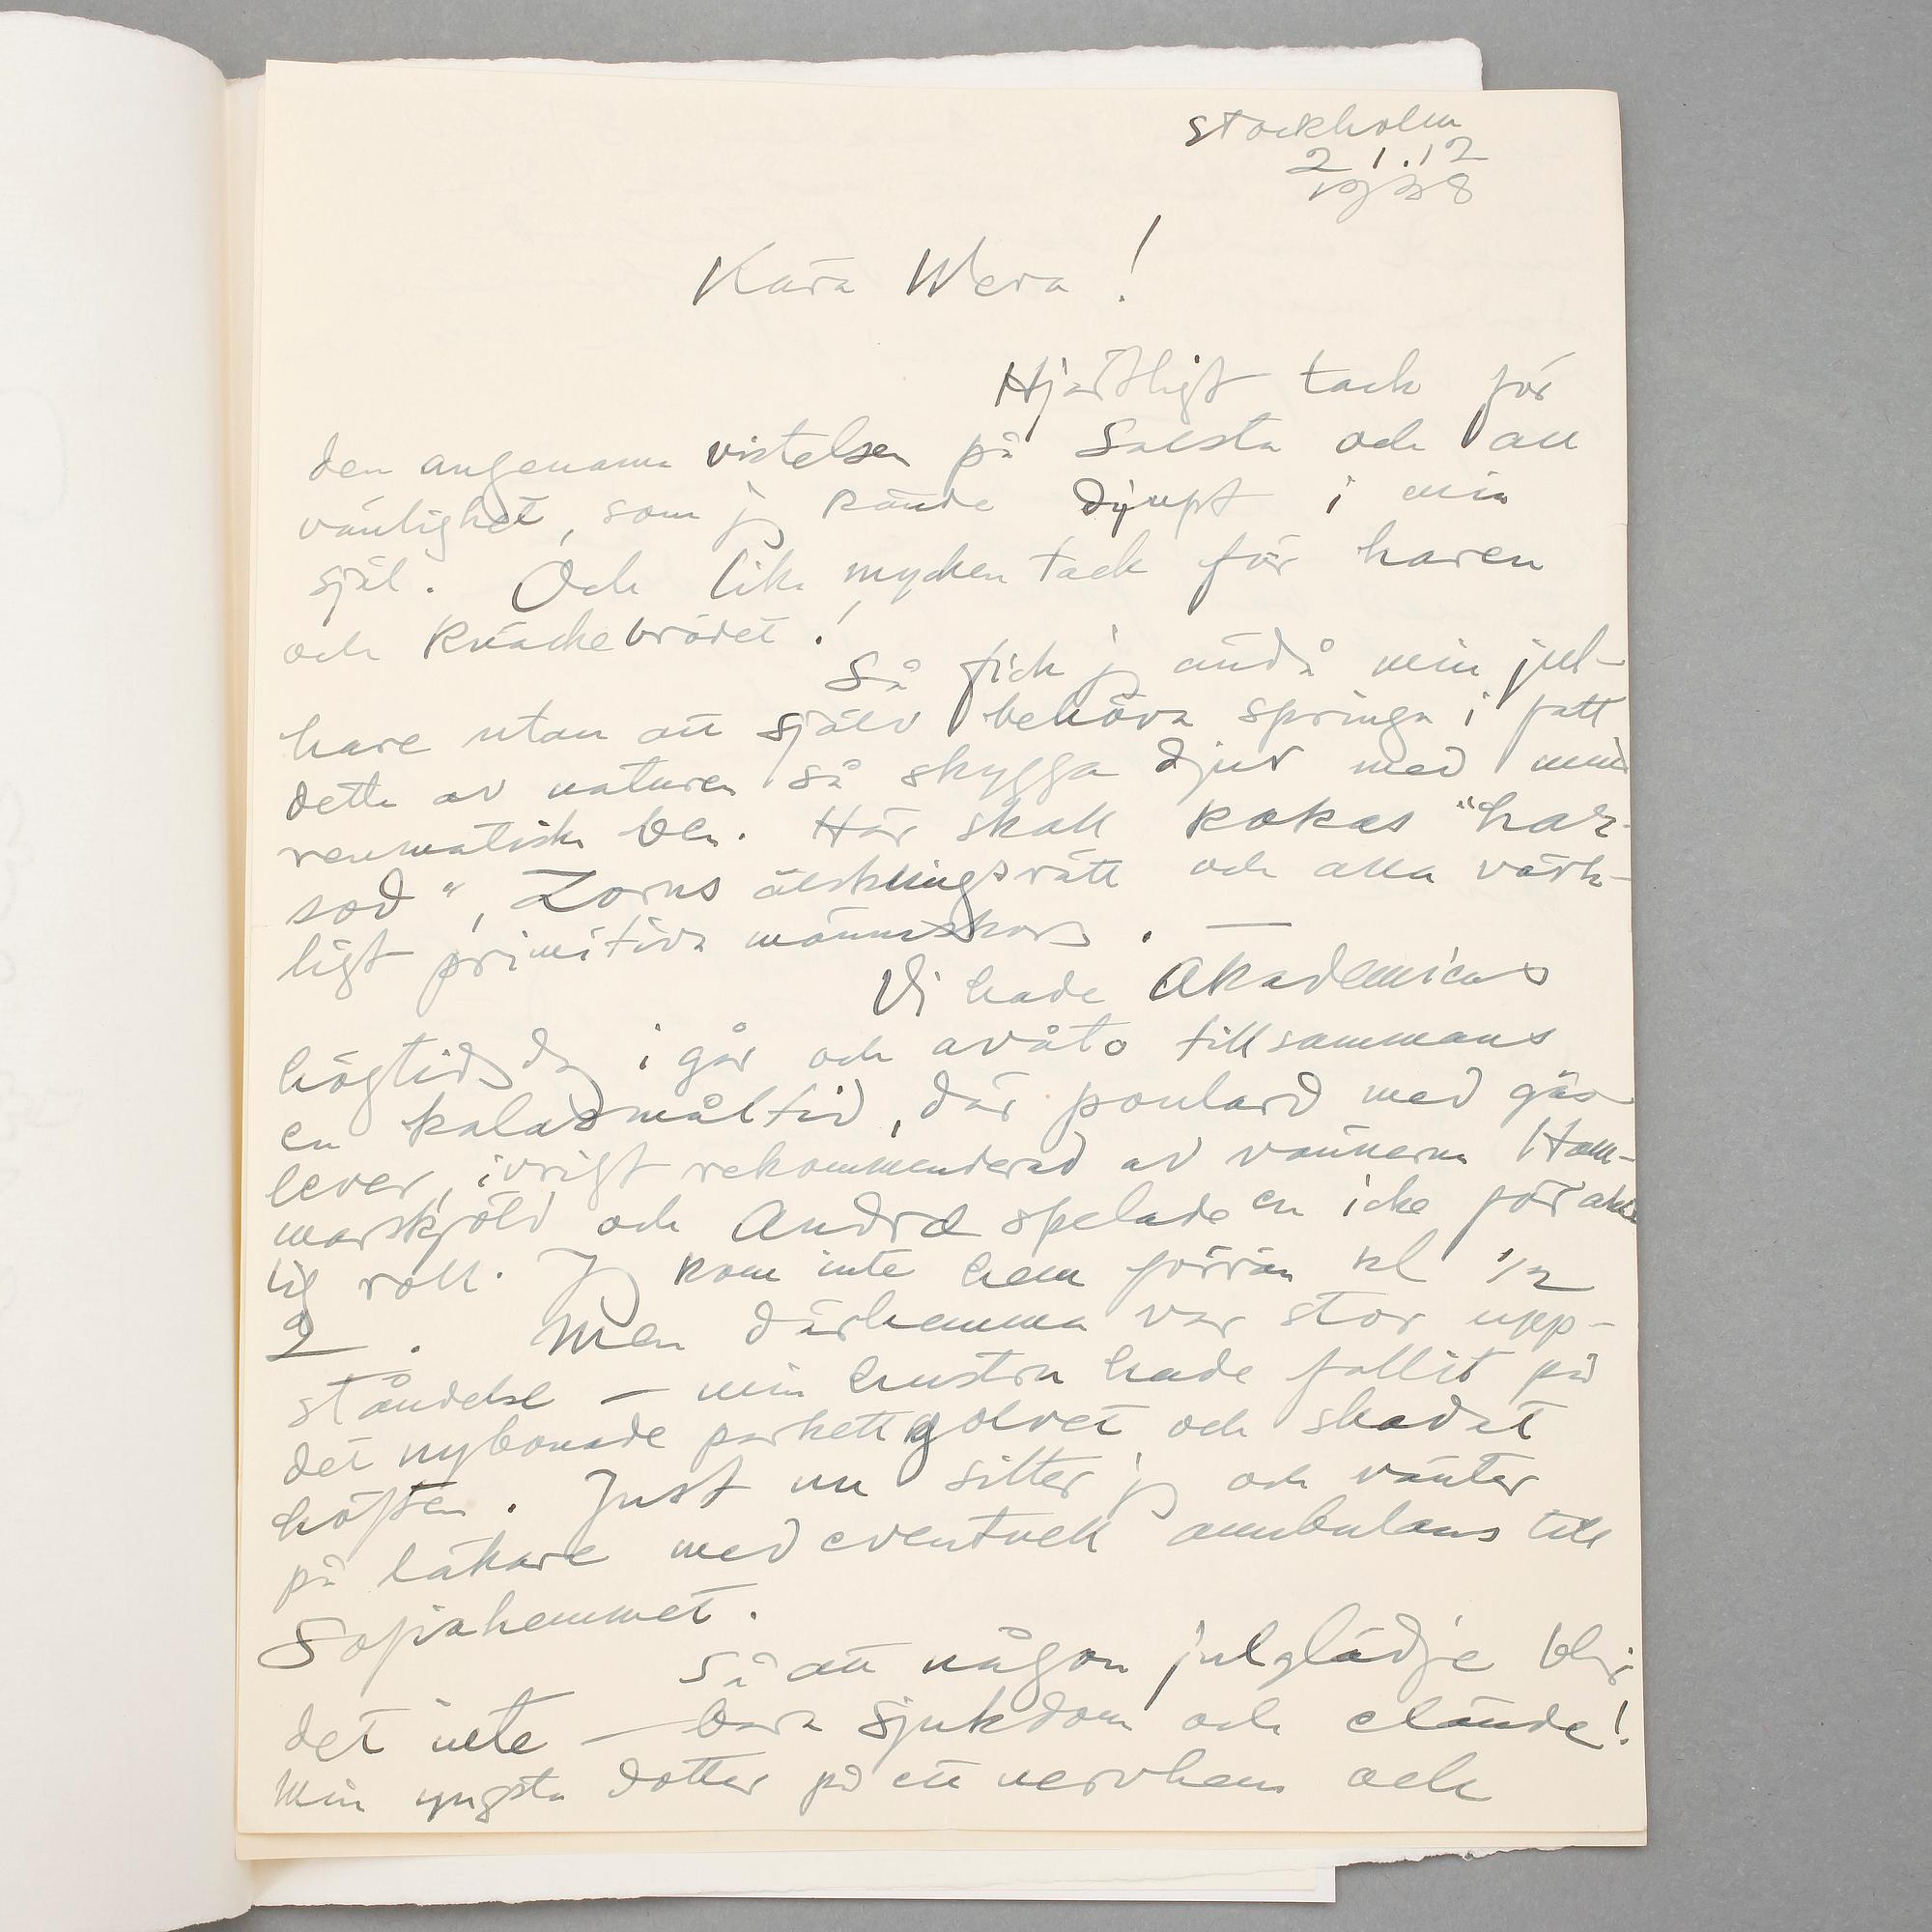 Stockholm
21.12
1938
Kära Wera!
Hjärtligt tack för
den angenäma vistelsen på Salsta och all
vänlighet, som jg kände djupt i min
själ. Och lika mycken tack för haren
och knäckebrödet!
Så fick jg ändå min jul-
hare utan att själv behöva springa i fatt
detta av naturen så skygga djur med mina
reumatiska ben. Här skall kokas "har-
sod", Zorns älsklingsrätt och alla värk-
ligt primitiva människors. —
Vi hade Akademiens
högtidsdag i går och avåto tillsammans
en kalasmåltid, där poulard med gås-
lever, ivrigt rekommenderad av vännerna Ham-
marskjöld och Andræ spelade en icke förakt-
lig roll. Jg kom inte hem förrän kl 1/2
2. Men därhemma var stor upp-
ståndelse — min hustru hade fallit på
det nybonade parkettgolvet och skadat
höften. Just nu sitter jg och väntar
på läkare med eventuell ambulans till
Sofiahemmet.
Så att någon julglädje blir
det inte — bara sjukdom och elände!
Min yngsta dotter på ett nervhem och